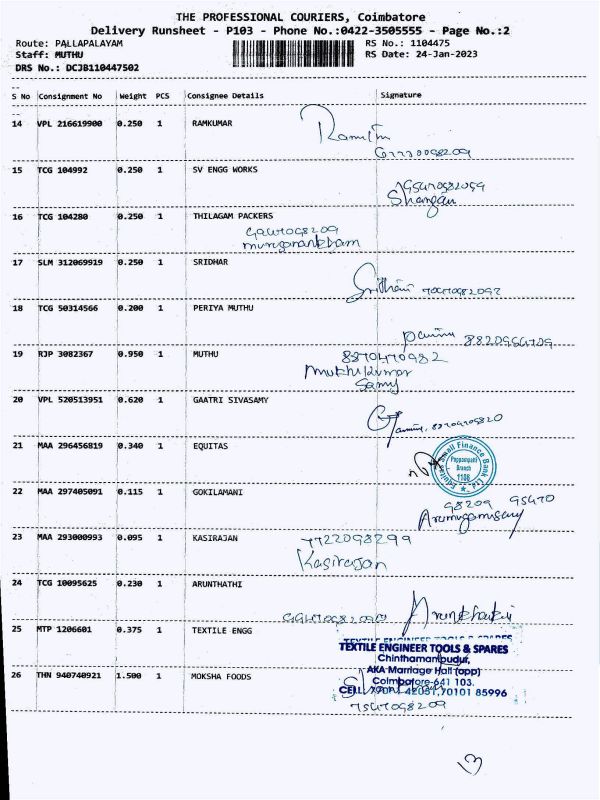 THE PROFESSIONAL COURIERS, Coimbatore
Delivery Runsheet - P103 - Phone No.:0422-3505555 - Page No.:2
Route: PALLAPALAYAM RS No.: 1104475
Staff: MUTHU RS Date: 24-Jan-2023
DRS No.: DCJB110447502
S No Consignment No Weight PCS Consignee Details Signature
14 VPL 216619900 0.250 1 RAMKUMAR
15 TCG 104992 0.250 1 SV ENGG WORKS
16 TCG 104280 0.250 1 THILAGAM PACKERS
17 SLM 312069919 0.250 1 SRIDHAR
18 TCG 50314566 0.200 1 PERIYA MUTHU
19 RJP 3082367 0.950 1 MUTHU
8870470982
Muthukumar
Samy
20 VPL 520513951 0.620 1 GAATRI SIVASAMY
21 MAA 296456819 0.340 1 EQUITAS
Equitas Small Finance Bank Ltd.
Branch
1108
22 MAA 297405091 0.115 1 GOKILAMANI
98209 95470
23 MAA 293000993 0.095 1 KASIRAJAN
7722098299
Kasirajan
24 TCG 10095625 0.230 1 ARUNTHATHI
25 MTP 1206601 0.375 1 TEXTILE ENGG
TEXTILE ENGINEER TOOLS & SPARES
TEXTILE ENGINEER TOOLS & SPARES
Chinthamanipudur,
AKA Marriage Hall (opp)
Coimbatore-641 103.
70101 85996
26 THN 940740921 1.500 1 MOKSHA FOODS
7547098209
13